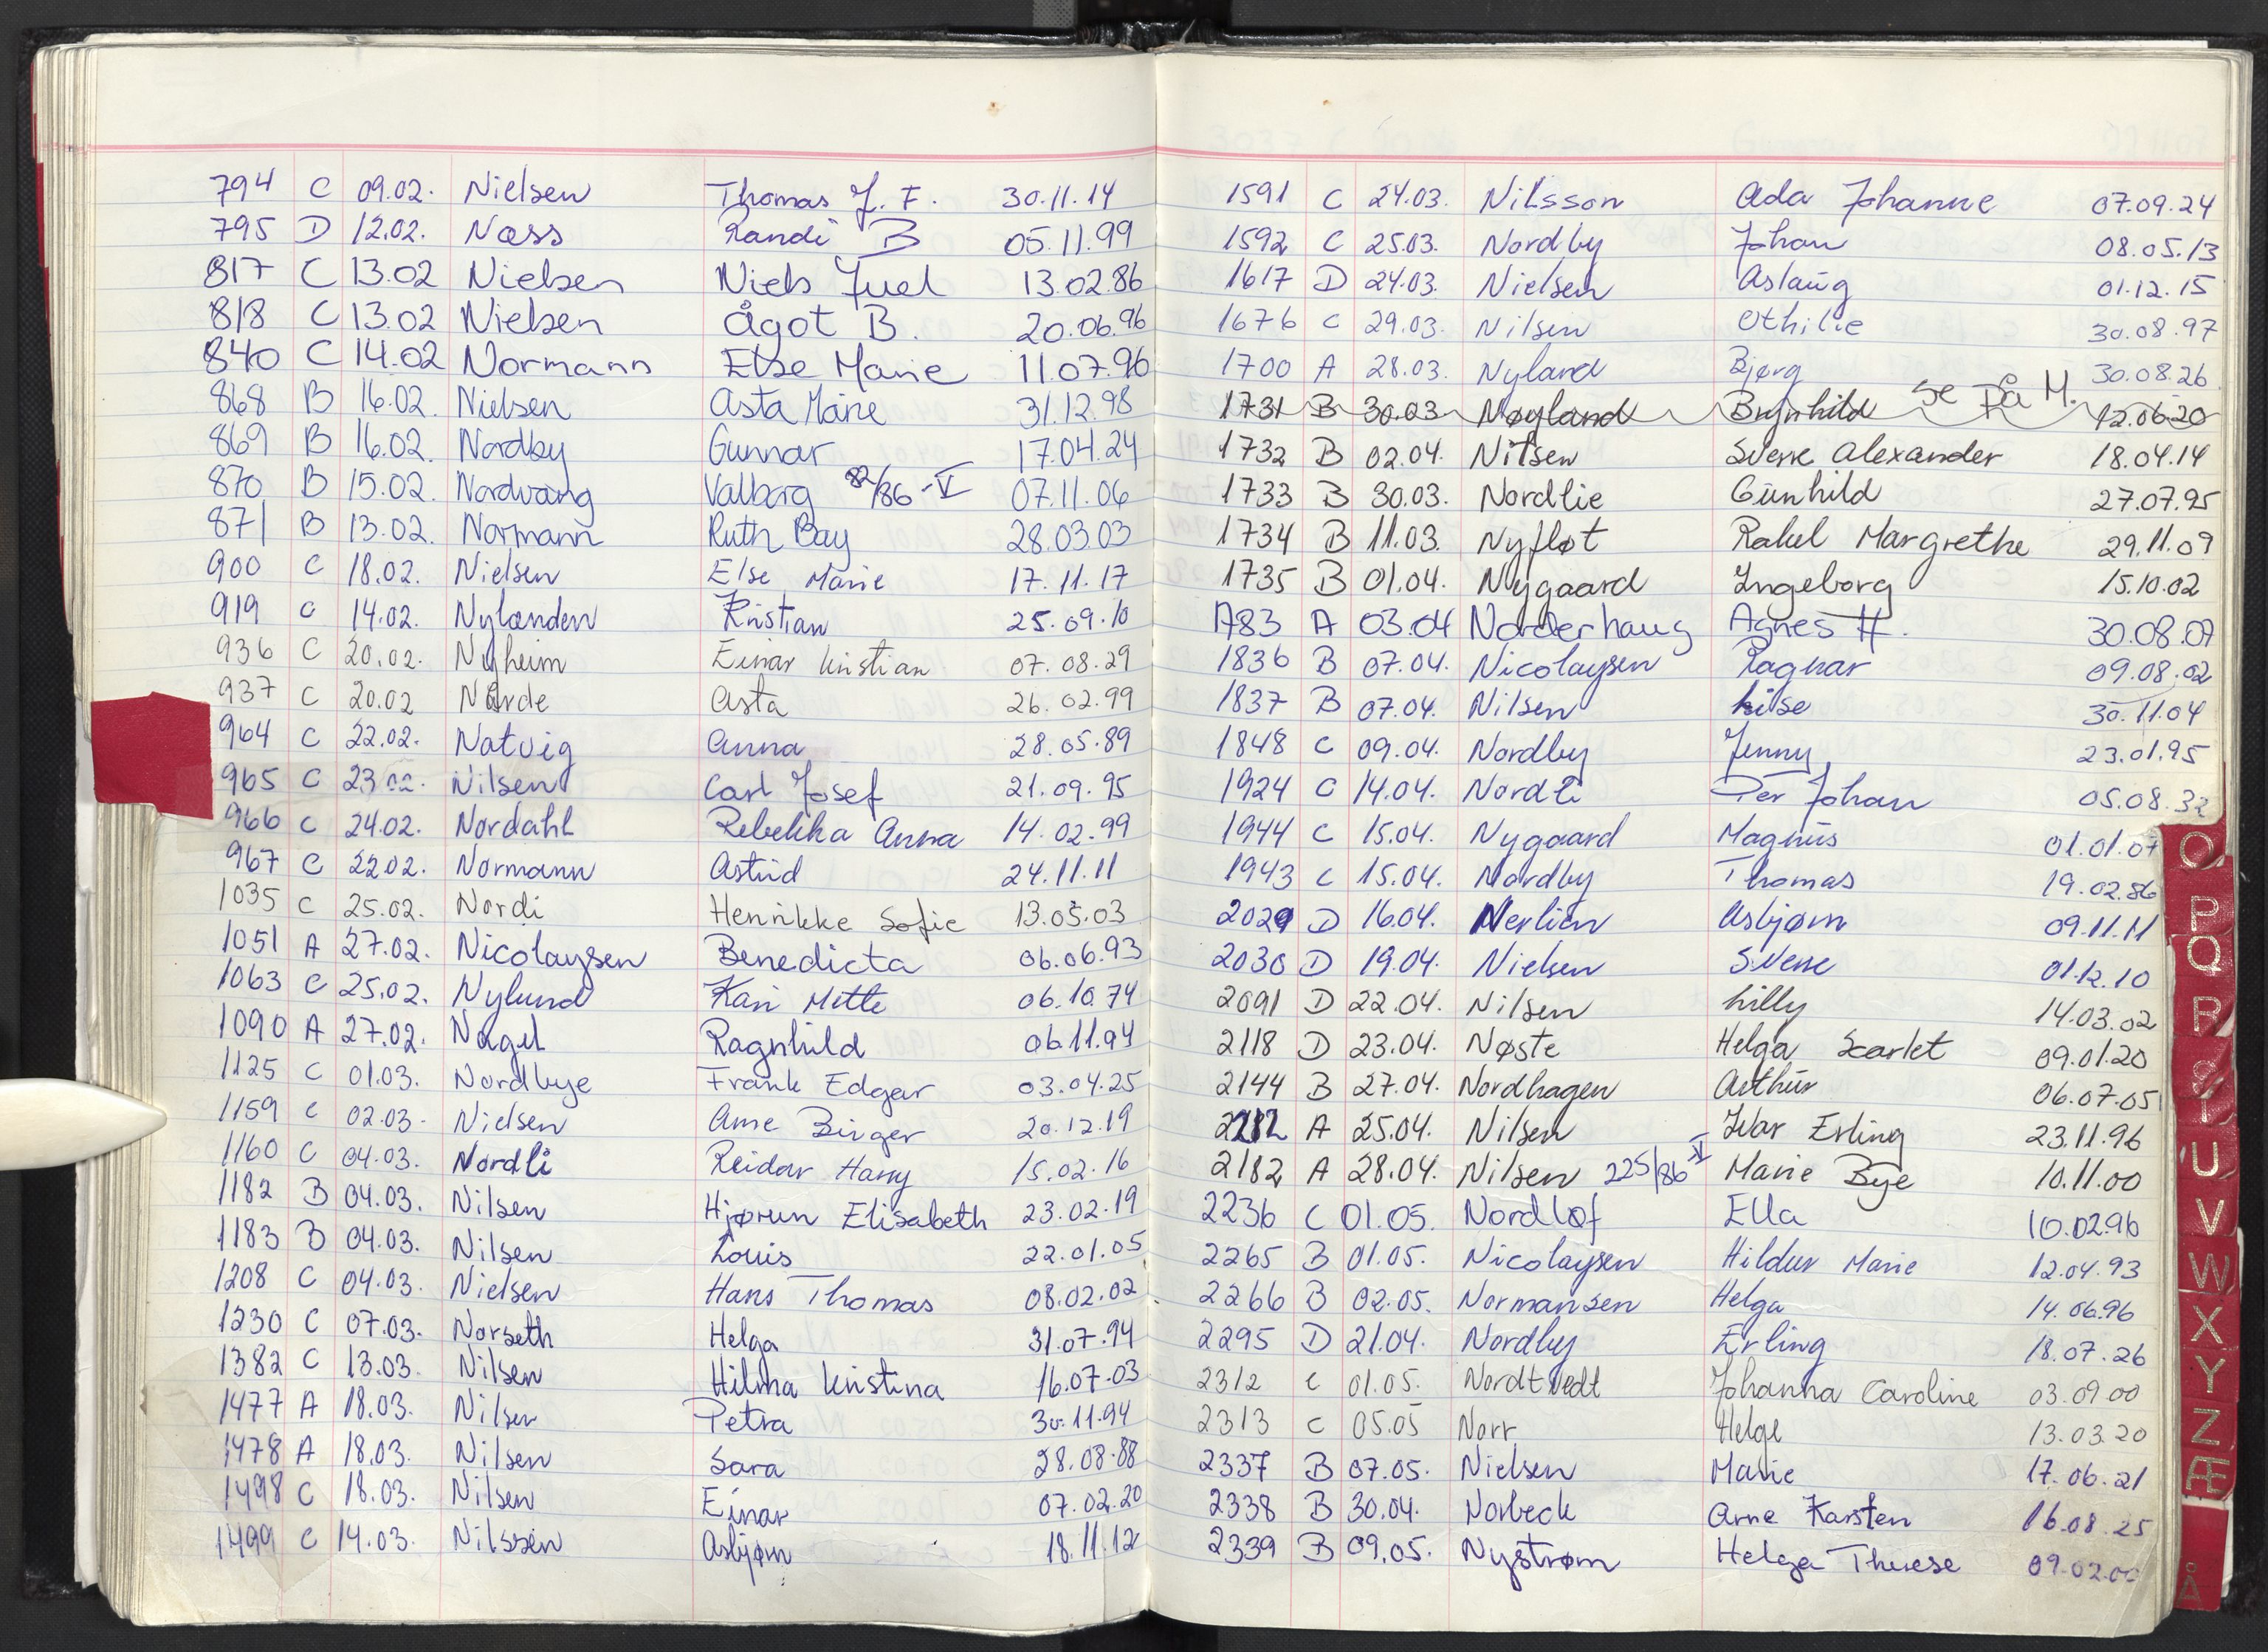 794 C 09.02. Nielsen Thomas J. F. 30.11.14
795 D 12.02. Næss Randi B 05.11.99
817 C 13.02 Nielsen Niels Juel 13.02.86
818 C 13.02 Nielsen Ågot B. 20.06.96
840 C 14.02 Normann Else Marie 11.07.96
868 B 16.02. Nielsen Asta Marie 31.12.98
869 B 16.02. Nordby Gunnar 17.04.24
870 B 15.02. Nordvang Valborg 82/86-V 07.11.06
871 B 13.02. Normann Ruth Bay 28.03.03
900 C 18.02. Nielsen Else Marie 17.11.17
919 C 14.02. Nylænden Kristian 25.09.10
936 C 20.02. Nyheim Einar Kristian 07.08.29
937 C 20.02 Narde Asta 26.02.99
964 C 22.02. Natvig Anna 28.05.89
965 C 23.02. Nilsen Carl Josef 21.09.95
966 C 24.02. Nordahl Rebekka Anna 14.02.99
967 C 22.02. Normann Astrid 24.11.11
1035 C 25.02. Nordi Henrikke Sofie 13.05.03
1051 A 27.02. Nicolaysen Benedicta 06.06.93
1063 C 25.02. Nylund Kari Mette 06.10.74
1090 A 27.02. Nagel Ragnhild 06.11.94
1125 C 01.03. Nordbye Frank Edgar 03.04.25
1159 C 02.03. Nielsen Arne Birger 20.12.19
1160 C 04.03. Nordli Reidar Harry 15.02.16
1182 B 04.03. Nilsen Hjørun Elisabeth 23.02.19
1183 B 04.03. Nilsen Louis 22.01.05
1208 C 04.03. Nielsen Hans Thomas 08.02.02
1230 C 07.03. Norseth Helga 31.07.94
1382 C 13.03. Nilsen Hilma Kristina 16.07.03
1477 A 18.03. Nilsen Petra 30.11.94
1478 A 18.03. Nilsen Sara 28.08.88
1498 C 18.03. Nilsen Einar 07.02.20
1499 C 14.03. Nilssen Asbjørn 18.11.12
1591 C 24.03. Nilsson Ada Johanne 07.09.24
1592 C 25.03. Nordby Johan 08.05.13
1617 D 24.03. Nielsen Aslaug 01.12.15
1676 C 29.03. Nilsen Othilie 30.08.97
1700 A 28.03. Nyland Bjørg 30.08.26
1731 B 30.03. Nøyland Brynhild se på M. 12.06.20
1732 B 02.04. Nilsen Sverre Alexander 18.04.14
1733 B 30.03. Nordlie Gunhild 27.07.95
1734 B 11.03. Nyfløt Rakel Margrethe 29.11.09
1735 B 01.04. Nygaard Ingeborg 15.10.02
1783 A 03.04 Norderhaug Agnes H. 30.08.07
1836 B 07.04. Nicolaysen Ragnar 09.08.02
1837 B 07.04. Nilsen Lilse 30.11.04
1848 C 09.04. Nordby Jenny 23.01.95
1924 C 14.04. Nordli Per Johan 05.08.32
1944 C 15.04. Nygaard Magnus 01.01.07
1943 C 15.04. Nordby Thomas 19.02.86
2029 D 16.04. Nerlien Asbjørn 09.11.11
2030 D 19.04. Nielsen Sverre 01.12.10
2091 D 22.04. Nilsen Lilly 14.03.02
2118 D 23.04. Nøste Helga Scarlet 09.01.20
2144 B 27.04. Nordhagen Arthur 06.07.05
A 25.04. Nilsen Ivar Erling 23.11.96
2182 A 28.04. Nilsen 225/86 V Marie Bye 10.11.00
2236 C 01.05. Nordløf Ella 10.02.96
2265 B 01.05. Nicolaysen Hildur Marie 12.04.93
2266 B 02.05. Normansen Helga 14.06.96
2295 D 21.04. Nordby Erling 18.07.26
2312 C 01.05. Nordtvedt Johanna Caroline 03.09.00
2313 C 05.05 Norr Helge 13.03.20
2337 B 07.05. Nielsen Marie 17.06.21
2338 B 30.04. Norbeck Arne Karsten 16.08.25
2339 B 09.05. Nystrøm Helga Therese 09.02.00
O
P
Q
R
S
T
U
V
W
X
Y
Z
Æ
Å